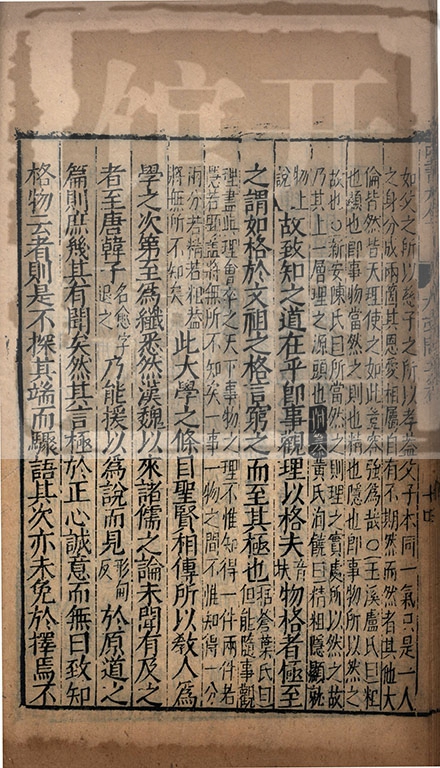 如父之所以慈子之所以孝蓋父子本同一氣只是一人
之身分成兩箇其恩愛相屬自有不期然而然者其他大
倫皆然皆天理使之如此豈容強為哉○玉溪盧氏曰粗
也顯也即事物當然之則也精也隱也即事物所以然之
故也○新安陳氏曰所當然之則理之實處所以然之故
乃其上一層理之源頭也黃氏洵饒曰精粗隱顯就
物上說故致知之道在乎即事觀理以格夫音扶物格者極至
之謂如格於文祖之格言窮之而至其極也括蒼葉氏曰但能隨事觀
理此理會卒之天下事物之理不惟知得一件兩件
蓋將無所不知矣一事一物之間不惟知得一分
兩分若精若粗益將無所不知矣此大學之條目聖賢相傳所以教人為
學之次第至為纖悉然漢魏以來諸儒之論未聞有及之
者至唐韓子名愈字退之乃能援以為說而見形甸反於原道之
篇則庶幾其有聞矣然其言極於正心誠意而無曰致知
格物云者則是不探其端而驟語其次亦未免於擇焉不